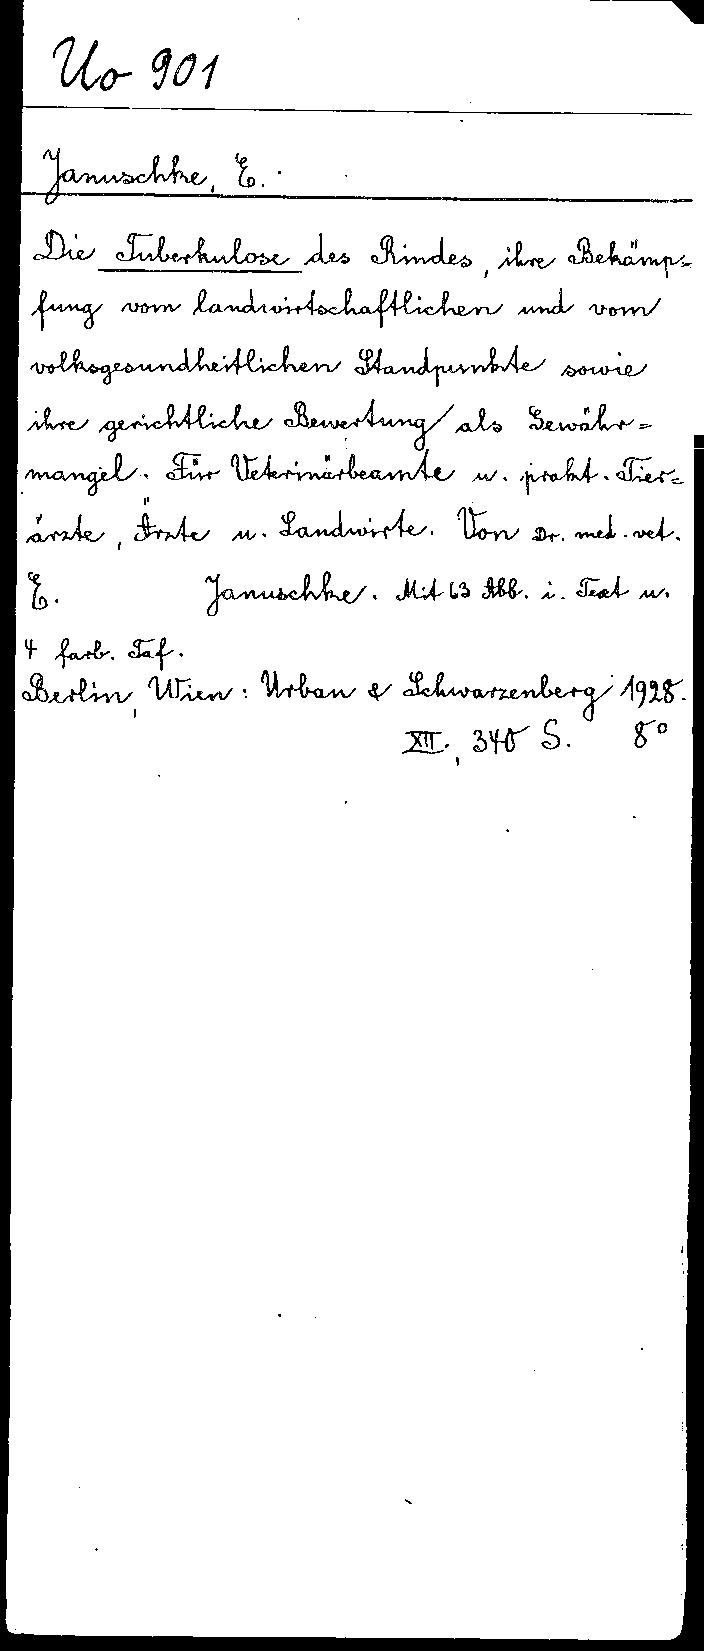 Uo 901
Januschke, E.
Die Tuberkulose des Rindes, ihre Bekämp=
fung vom landwirtschaftlichen und vom
volksgesundheitlichen Standpunkte sowie
ihre gerichtliche Bewertung als Gewähr=
mangel. Für Veterinärbeamte u. prakt. Tier=
ärzte, Ärzte u. Landwirte. Von Dr. med. vet.
E. Januschke. Mit 63 Abb. i. Text u.
4 farb. Taf.
Berlin, Wien: Urban & Schwarzenberg 1928.
XII., 340 S. 8°